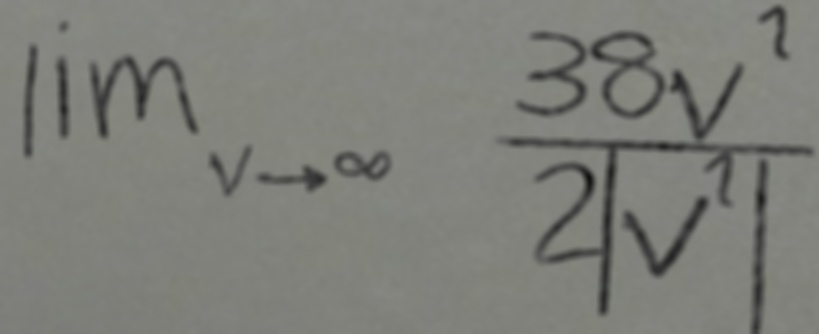 \lim_{v \to \infty} \frac{38v^1}{2|v^1|}